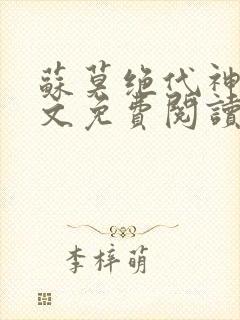 蘇莫絶代神
文免費閱讀
李梓萌